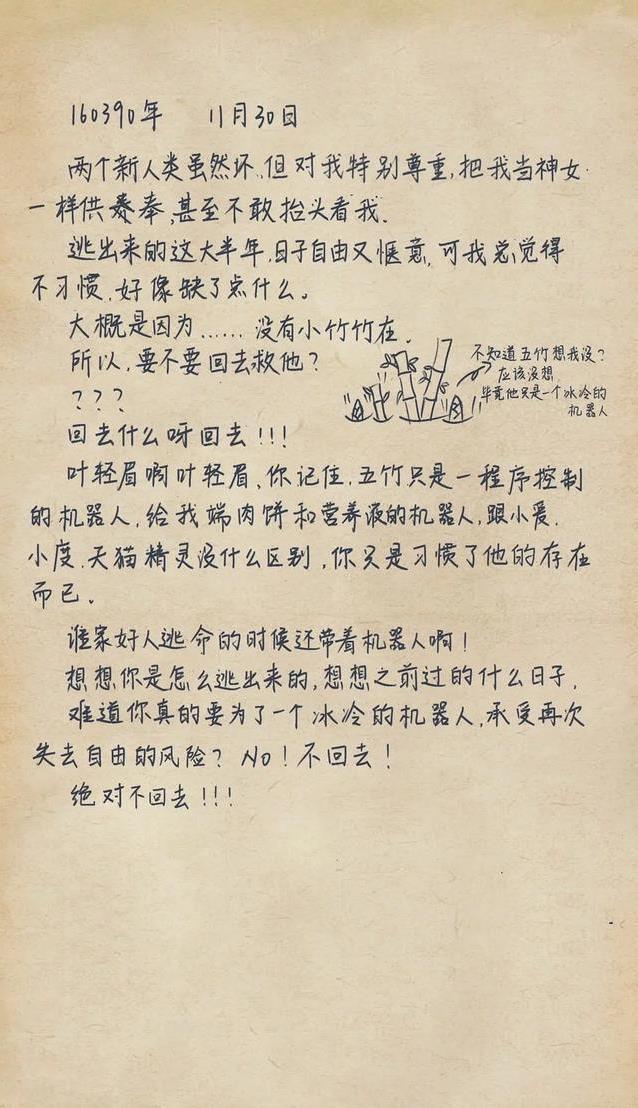 160390年 11月30日
两个新人类虽然坏,但对我特别尊重,把我当神女
一样供奉,甚至不敢抬头看我.
逃出来的这大半年,日子自由又惬意,可我总觉得
不习惯,好像缺了点什么。
大概是因为……没有小竹竹在.
所以,要不要回去救他?
???
回去什么呀回去!!!
不知道五竹想我没?
应该没想,
毕竟他只是一个冰冷的
机器人
叶轻眉啊叶轻眉、你记住,五竹只是一程序控制
的机器人,给我端肉饼和营养液的机器人,跟小爱.
小度.天猫精灵没什么区别,你只是习惯了他的存在
而已。
谁家好人逃命的时候还带着机器人啊!
想想你是怎么逃出来的,想想之前过的什么日子,
难道你真的要为了一个冰冷的机器人,承受再次
失去自由的风险? No!不回去!
绝对不回去!!!